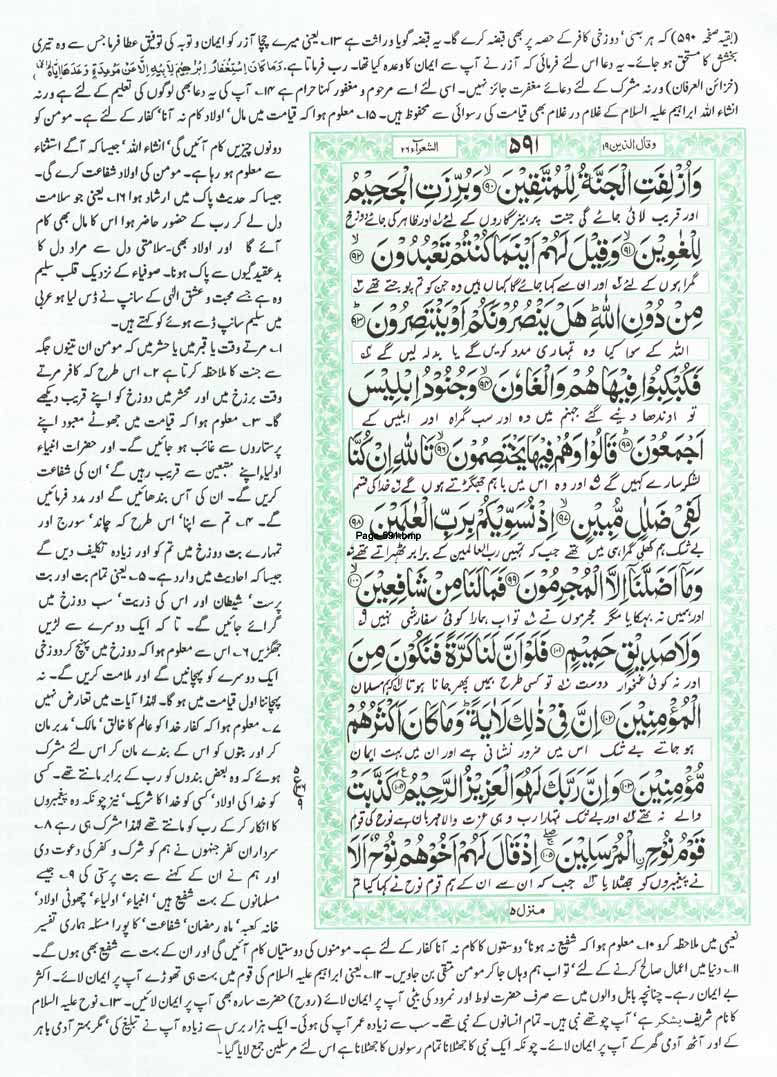 (بقیہ صفحہ ۵۹۰) کہ ہر بستی' دوزخی کافر کے حصہ پر بھی قبضہ کرے گا۔ یہ قبضہ گویا وراثت ہے ۱۳۔ یعنی میرے چچا آزر کو ایمان و توبہ کی توفیق عطا فرما جس سے وہ تیری
بخشش کا مستحق ہو جائے۔ یہ دعا اس لئے فرمائی کہ آزر نے آپ سے ایمان کا وعدہ کیا تھا۔ رب فرماتا ہے، وَمَا كَانَ اسْتِغْفَارُ اِبْرٰهِيْمَ لِاَبِيْهِ اِلَّا عَنْ مَّوْعِدَةٍ وَّعَدَهَآ اِيَّاهُ
(خزائن العرفان) ورنہ مشرک کے لئے دعائے مغفرت جائز نہیں۔ اسی لئے اسے مرحوم و مغفور کہنا حرام ہے ۱۴۔ آپ کی یہ دعا بھی لوگوں کی تعلیم کے لئے ہے ورنہ
انشاء اللہ ابراہیم علیہ السلام کے غلام در غلام بھی قیامت کی رسوائی سے محفوظ ہیں۔ ۱۵۔ معلوم ہوا کہ قیامت میں مال' اولاد کام نہ آنا' کفار کے لئے ہے۔ مومن کو
دونوں چیزیں کام آئیں گی' انشاء اللہ' جیسا کہ آگے استثناء
سے معلوم ہو رہا ہے۔ مومن کی اولاد شفاعت کرے گی۔
جیسا کہ حدیث پاک میں ارشاد ہوا ۱۶۔ یعنی جو سلامت
دل لے کر رب کے حضور حاضر ہوا اس کا مال بھی کام
آئے گا اور اولاد بھی۔ سلامتی دل سے مراد دل کا
بد عقیدگیوں سے پاک ہونا۔ صوفیاء کے نزدیک قلب سلیم
وہ ہے جسے محبت و عشق الٰہی کے سانپ نے ڈس لیا ہو عربی
میں سلیم سانپ ڈسے ہوئے کو کہتے ہیں۔
۱۔ مرتے وقت یا قبر میں یا حشر میں کہ مومن ان تینوں جگہ
سے جنت کا ملاحظہ کرتا ہے ۲۔ اس طرح کہ کافر مرتے
وقت برزخ میں اور محشر میں دوزخ کو اپنے قریب دیکھے
گا۔ ۳۔ معلوم ہوا کہ قیامت میں جھوٹے معبود اپنے
پرستاروں سے غائب ہو جائیں گے۔ اور حضرات انبیاء
اولیاء اپنے متبعین سے قریب رہیں گے' ان کی شفاعت
کریں گے۔ ان کی آس بندھائیں گے اور مدد فرمائیں
گے۔ ۴۔ تم سے اپنا' اس طرح کہ چاند' سورج اور
تمہارے بت دوزخ میں تم کو اور زیادہ تکلیف دیں گے
جیسا کہ احادیث میں وارد ہے۔ ۵۔ یعنی تمام بت اور بت
پرست' شیطان اور اس کی ذریت' سب دوزخ میں
گرائے جائیں گے۔ تا کہ ایک دوسرے سے لڑیں
جھگڑیں ۶۔ اس سے معلوم ہوا کہ دوزخ میں پہنچ کر دوزخی
ایک دوسرے کو پہچانیں گے اور ملامت کریں گے۔ نہ
پہچاننا اول قیامت میں ہو گا۔ لہٰذا آیات میں تعارض نہیں
۷۔ معلوم ہوا کہ کفار خدا کو عالم کا خالق' مالک' مدبر مان
کر اور بتوں کو اس کے بندے مان کر اس لئے مشرک
ہوئے کہ وہ بعض بندوں کو رب کے برابر مانتے تھے۔ کسی
کو خدا کی اولاد' کسی کو خدا کا شریک' نیز چونکہ وہ پیغمبروں
کا انکار کر کے رب کو مانتے تھے لہٰذا مشرک ہی رہے ۸۔
سرداران کفر جنہوں نے ہم کو شرک و کفر کی دعوت دی
اور ہم نے ان کے کہنے سے بت پرستی کی ۹۔ جیسے
مسلمانوں کے بہت شفیع ہیں' انبیاء' اولیاء' چھوٹی اولاد'
خانہ کعبہ' ماہ رمضان' شفاعت' کا پورا مسئلہ ہماری تفسیر
وقال الذین ۱۹
۵۹۱
الشعراء ۲۶
وَاُزْلِفَتِ الْجَنَّةُ لِلْمُتَّقِيْنَ ۹۰ وَبُرِّزَتِ الْجَحِيْمُ
اور قریب لائی جائے گی جنت پرہیزگاروں کے لیئے اور ظاہر کی جائے دوزخ
لِلْغٰوِيْنَ ۹۱ وَقِيْلَ لَهُمْ اَيْنَمَا كُنْتُمْ تَعْبُدُوْنَ ۹۲
گمراہوں کے لئے اور ان سے کہا جائے گا کہاں ہیں وہ جن کو تم پوجتے تھے
مِنْ دُوْنِ اللّٰهِ هَلْ يَنْصُرُوْنَكُمْ اَوْ يَنْتَصِرُوْنَ ۹۳
اللہ کے سوا کیا وہ تمہاری مدد کریں گے یا بدلہ لیں گے
فَكُبْكِبُوْا فِيْهَا هُمْ وَالْغَاوٗنَ ۹۴ وَجُنُوْدُ اِبْلِيْسَ
تو اوندھا دیئے گئے جہنم میں وہ اور سب گمراہ اور ابلیس کے
اَجْمَعُوْنَ ۹۵ قَالُوْا وَهُمْ فِيْهَا يَخْتَصِمُوْنَ ۹۶ تَاللّٰهِ اِنْ كُنَّا
لشکر سارے کہیں گے اور وہ اس میں باہم جھگڑتے ہوں گے خدا کی قسم
لَفِيْ ضَلٰلٍ مُّبِيْنٍ ۹۷ اِذْ نُسَوِّيْكُمْ بِرَبِّ الْعٰلَمِيْنَ ۹۸
بے شک ہم کھلی گمراہی میں تھے جب کہ تمہیں رب العالمین کے برابر ٹھہراتے تھے
Page-591.bmp
وَمَآ اَضَلَّنَآ اِلَّا الْمُجْرِمُوْنَ ۹۹ فَمَا لَنَا مِنْ شَافِعِيْنَ ۱۰۰
اور ہمیں نہ بہکایا مگر مجرموں نے تو اب ہمارا کوئی سفارشی نہیں
وَلَا صَدِيْقٍ حَمِيْمٍ ۱۰۱ فَلَوْ اَنَّ لَنَا كَرَّةً فَنَكُوْنَ مِنَ
اور نہ کوئی غمخوار دوست تو کسی طرح ہمیں پھر جانا ہوتا کہ ہم مسلمان
الْمُؤْمِنِيْنَ ۱۰۲ اِنَّ فِيْ ذٰلِكَ لَاٰيَةً وَمَا كَانَ اَكْثَرُهُمْ
ہو جاتے بے شک اس میں ضرور نشانی ہے اور ان میں بہت ایمان
مُّؤْمِنِيْنَ ۱۰۳ وَاِنَّ رَبَّكَ لَهُوَ الْعَزِيْزُ الرَّحِيْمُ ۱۰۴ كَذَّبَتْ
والے نہ تھے اور بے شک تمہارا رب وہی عزت والا مہربان ہے نوح کی قوم
قَوْمُ نُوْحِ ِۨالْمُرْسَلِيْنَ ۱۰۵ اِذْ قَالَ لَهُمْ اَخُوْهُمْ نُوْحٌ اَلَا
نے پیغمبروں کو جھٹلایا جب کہ ان سے ان کے ہم قوم نوح نے کہا کیا تم
منزل ۵
نعیمی میں ملاحظہ کرو ۱۰۔ معلوم ہوا کہ شفیع نہ ہونا' دوستوں کا کام نہ آنا کفار کے لئے ہے۔ مومنوں کی دوستیاں کام آئیں گی اور ان کے بہت سے شفیع بھی ہوں گے۔
۱۱۔ دنیا میں اعمال صالح کرنے کے لئے' تو اب ہم وہاں جا کر مومن متقی بن جاویں۔ ۱۲۔ یعنی ابراہیم علیہ السلام کی قوم میں بہت ہی تھوڑے آپ پر ایمان لائے۔ اکثر
بے ایمان رہے۔ چنانچہ بابل والوں میں سے صرف حضرت لوط اور نمرود کی بیٹی آپ پر ایمان لائے (روح) حضرت سارہ بھی آپ پر ایمان لائیں۔ ۱۳۔ نوح علیہ السلام
کا نام شریف یشکر ہے' آپ چوتھے نبی ہیں۔ تمام انسانوں کے نبی تھے۔ سب سے زیادہ عمر آپ کی ہوئی۔ ایک ہزار برس سے زیادہ آپ نے تبلیغ کی' مگر بہتر آدمی باہر
کے اور آٹھ آدمی گھر کے آپ پر ایمان لائے۔ چونکہ ایک نبی کا جھٹلانا تمام رسولوں کا جھٹلانا ہے اس لئے مرسلین جمع لایا گیا۔